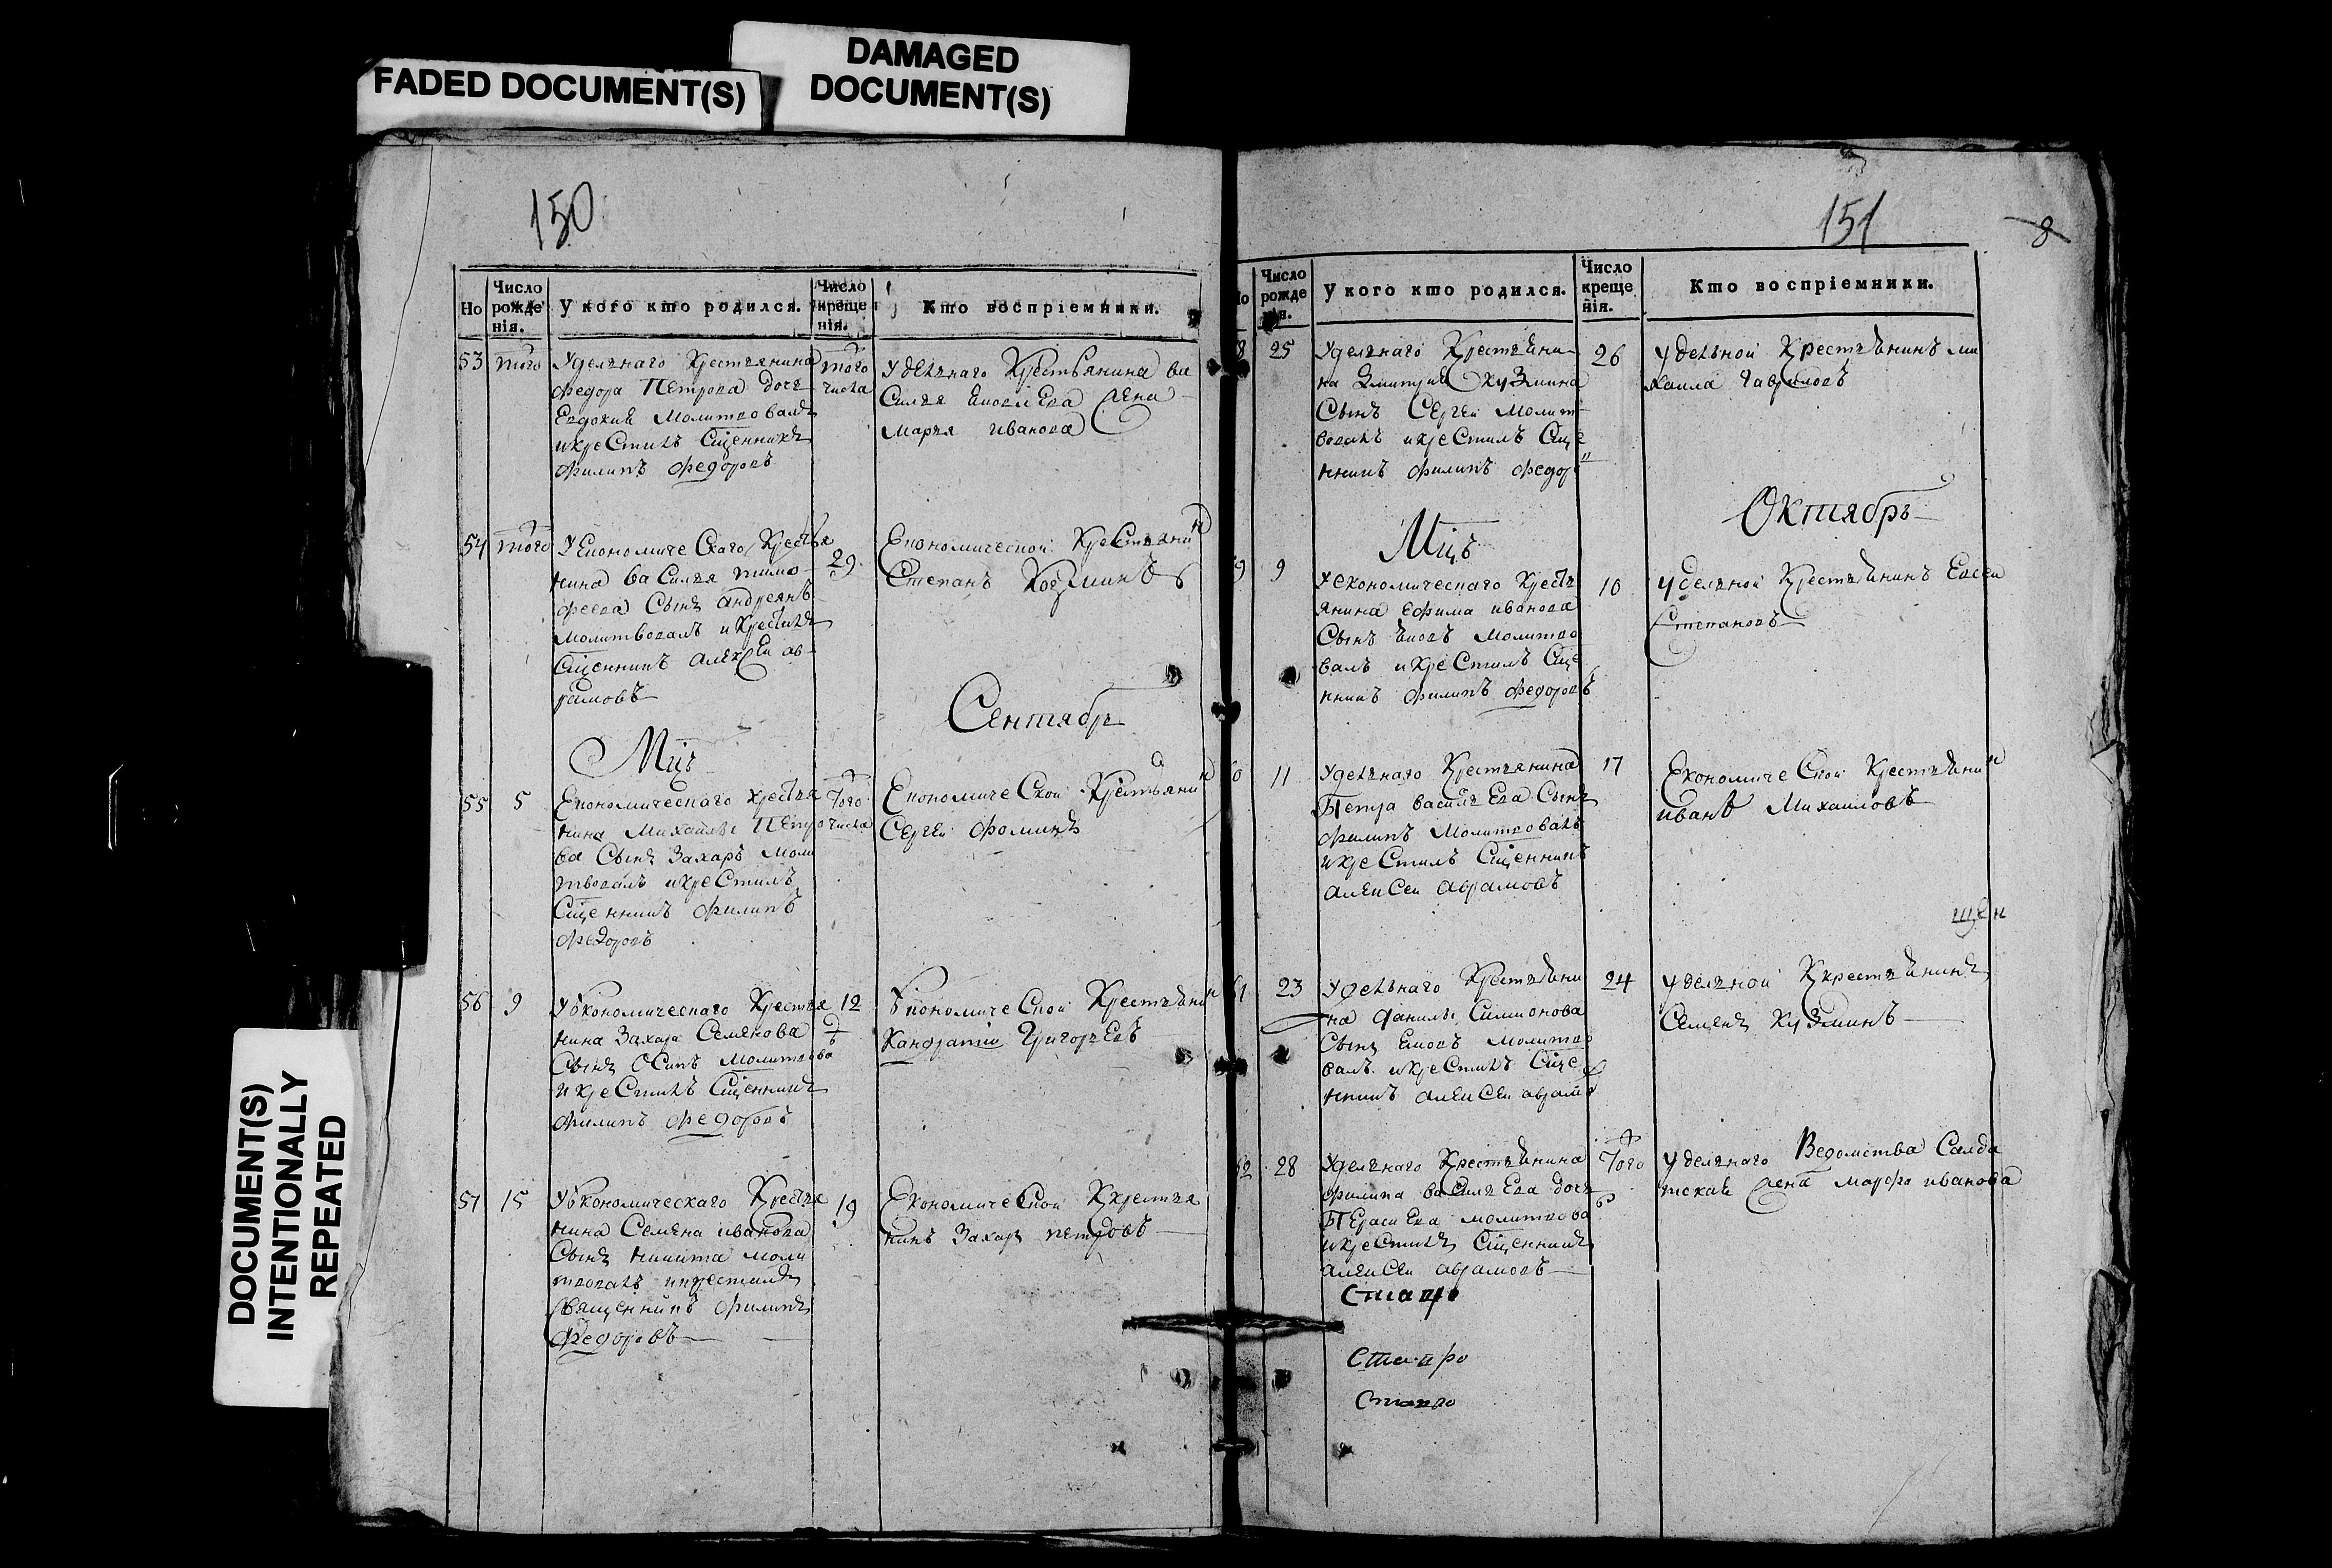 FADED DOCUMENT(S)
DAMAGED
DOCUMENT(S)
DOCUMENT(S)
INTENTIONALLY
REPEATED
150
Но
Число
рожде
нія.
У кого кто родился.
Число
креще
нія.
Кто воспріемники.
53
того
Уделънаго Крестъянина
Федора Петрова дочъ
Евдокия Молитвовалъ
и крестилъ Сщенникъ
Филипъ Федоровъ
того
числа
Уделънаго Крестьянина ва
Силъя
Маръя Иванова
54
того
У Економическаго Крестъя
нина ваСилъя тимо
феева Сынъ андреянъ
молитвовалъ и крестилъ
Сщенникъ алексей ав
рамовъ
29
Економической Крестъянин
Степанъ Козминъ
Мцъ
Сентябръ
55
5
Економическаго крестъя
нина Михаилы Петро
ва Сынъ Захаръ моли
твовалъ и крестилъ
Сщенникъ филипъ
федоровъ
Того
числа
Економической Крестьянин
Сергей Фоминъ
56
9
У Економическаго Крестъя
нина Захара Семенова
Сынъ ОСипъ молитвова
и крестилъ Сщенникъ
филипъ федоровъ
12
Економической Крестъянин
Кандратий Григоръевъ
57
15
У Економическаго Крестъя
нина Семена иванова
Сынъ никита моли
твовалъ и крестилъ
Священникъ филипъ
федоровъ
19
Економической Ккрестъя
нинъ Захаръ петровъ
151
8
Число
рожде
нія.
У кого кто родился.
Число
креще
нія.
Кто воспріемники.
8
25
Уделънаго Крестъяни
на Дмитрия Кузмина
Сынъ Сергей молит
вовалъ и крестилъ Сще
нникъ филипъ федор
26
Уделъной Крестъянинъ ми
хаила гавриловъ
Мцъ
Октябръ
9
9
У економическаго Крестъ
янина ефима иванова
Сынъ молитво
валъ и крестилъ Сще
нникъ филипъ федоровъ
10
Уделъной Крестъянинъ Евсей
Степановъ
0
11
Уделънаго Крестъянина
Петра василъева Сынъ
филипъ молитвовалъ
и крестилъ Сщенникъ
алексей аврамовъ
17
Економической Крестъянин
иванъ Михаиловъ
1
23
Уделънаго Крестъяни
на данилы Симионова
Сынъ молитво
валъ и крестилъ Сще
нникъ алексей аврамо
24
Уделъной Ккрестъянинъ
Семенъ Кузминъ
62
28
Уделънаго Крестъянина
филипа василъева дочъ
молитвова
и крестилъ Сщенникъ
алексей аврамовъ
Того
Уделънаго Ведомства Салда
тская жена марфа иванова